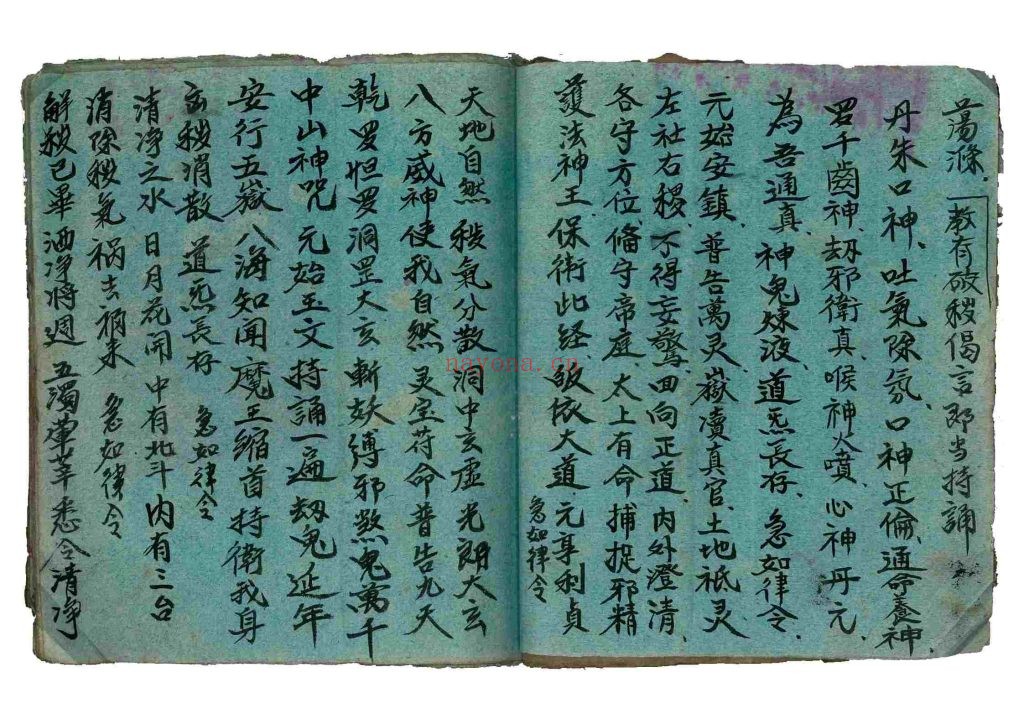 蕩滌、教有破穢偈言即当持誦
丹朱口神、吐氣除氛、口神正倫、通命養神、
罗千齒神、刼邪衛真、喉神火噴、心神丹元、
為吾通真、神鬼煉液、道炁長存、急如律令、
元始安鎮、普告萬灵、嶽凟真官、土地祇灵、
左社右稷、不得妄驚、回向正道、內外澄清、
各守方位、俻守帝庭、太上有命捕捉邪精
護法神王、保衛此経、皈依大道、元亨利貞 急如律令
天地自然 穢氣分散 洞中玄虛 光朗太玄
八方威神使我自然 灵宝符命 普告九天
乾罗怛罗洞罡大玄 斬妖縛邪 煞鬼萬千
中山神咒 元始玉文 持誦一遍 刼鬼延年
安行五嶽 八海知闻 魔王缩首 持衛我身
㐫穢消散 道炁長存 急如律令
清净之水 日月花闹 中有北斗 内有三台
消除穢氣 祸去祸来 急如律令
解穢已畢 洒净将週 五濁葷辛悉令清净
nayona.cn